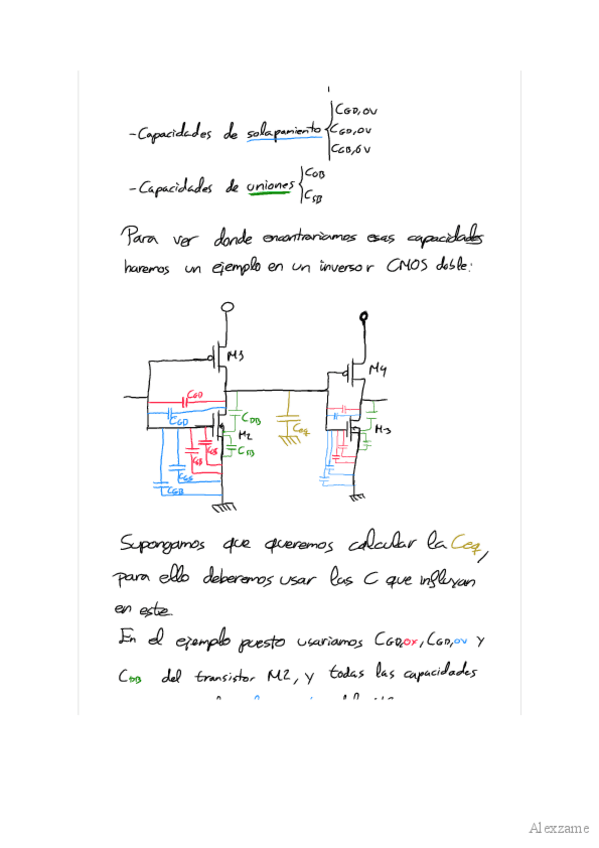 CGD,OV
- Capacidades de solapamiento CGD,OV
CGB,OV
- Capacidades de uniones CDB
CSB
Para ver donde encontrariamos esas capacidades
haremos un ejemplo en un inversor CMOS doble:
M3
M4
CGD
CGD
CDB
Ceq
M2
M3
CGS
CGB
CSB
CGS
CGB
Supongamos que queremos calcular la Ceq,
para ello deberemos usar las C que influyan
en este.
En el ejemplo puesto usariamos CGD,ox, CGD,ov y
CDB del transistor M2, y todas las capacidades
Alexzame